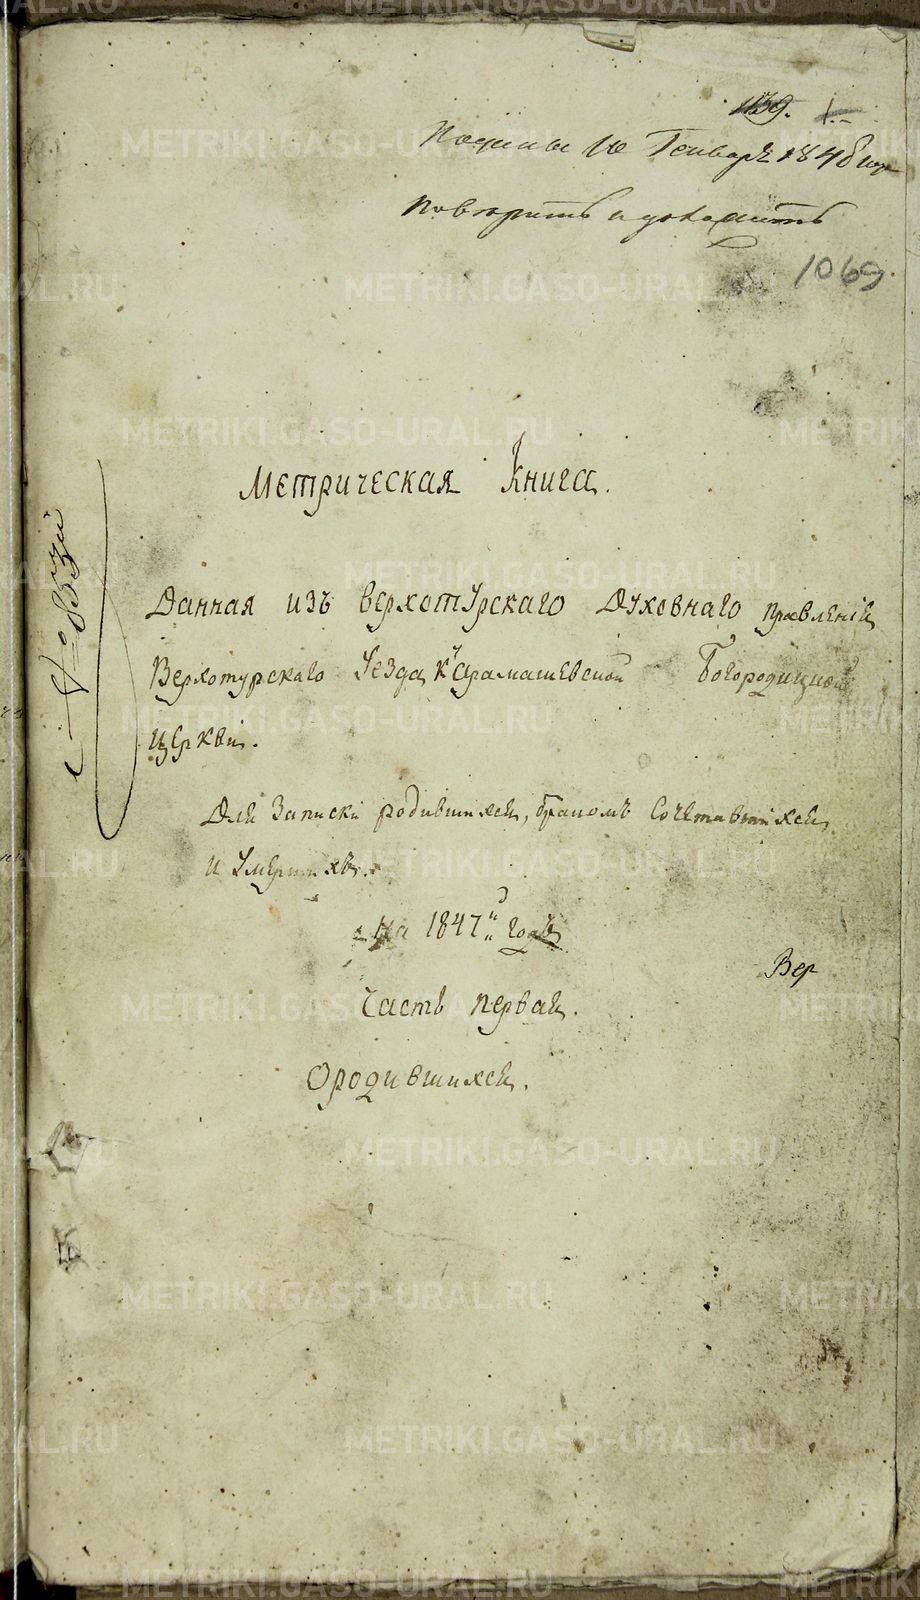 1139. 1.
Поданы 10 Генваря 1848 года
Повѣрить и доложить
1069.
Метрическая Книга.
Данная изъ Верхотурскаго Духовнаго правленія
Верхотурскаго Уезда, къ Арамашевской Богородицкой
Церкви.
Для Записки родившихся, бракомъ Сочетавшихся
и Умершихъ.
На 1847й годъ
Вер
Часть первая.
О родившихся.
METRIKI.GASO-URAL.RU